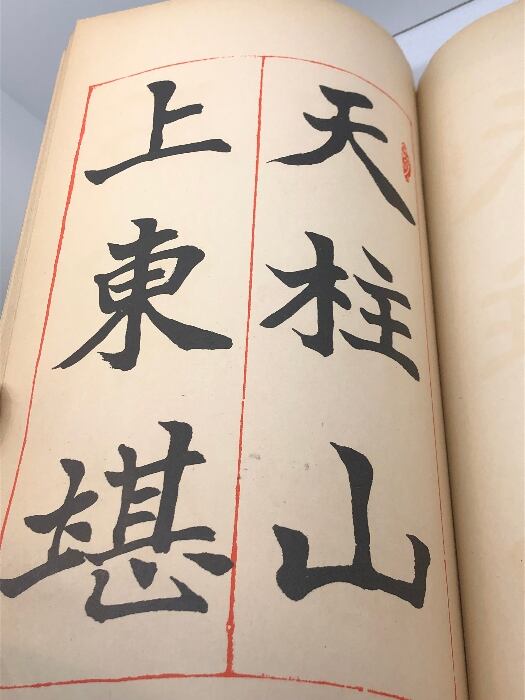 天柱山
上東堪